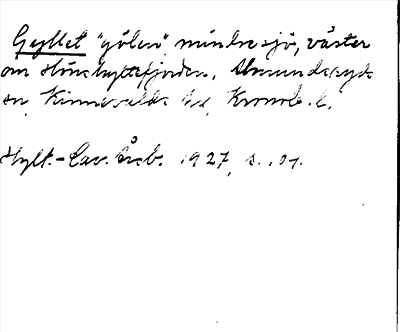 Gyllet "gölen", mindre sjö, väster
om Hönshyltefjorden, Almundsryds
sn, Kinnevalds hd, Kronob. l.
Hylt.-Cav. Årsb. 1927, s. 101.